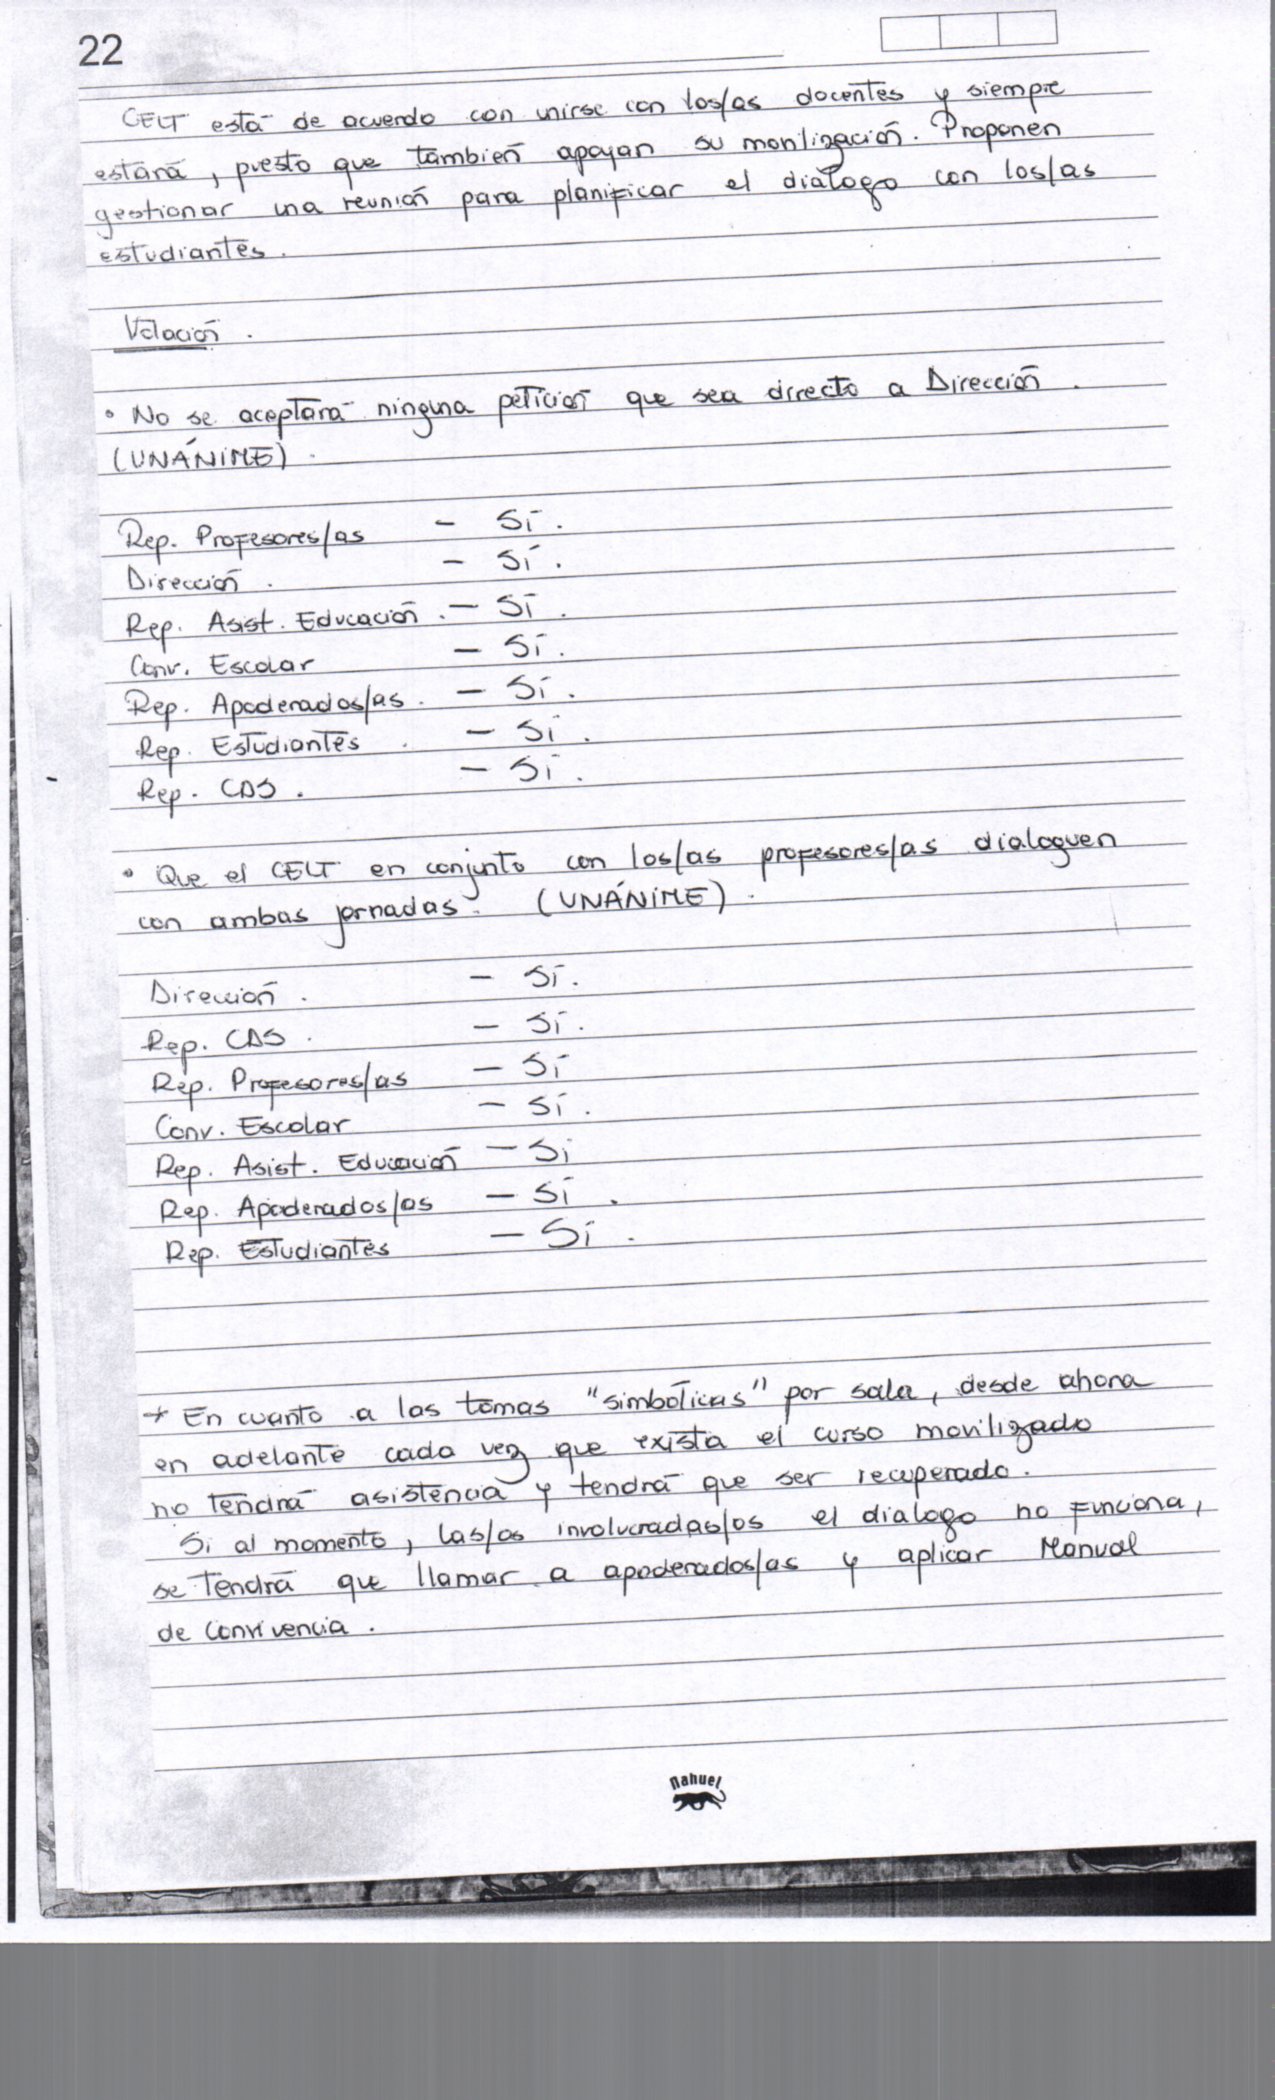 22
CELT está de acuerdo con unirse con los/as docentes y siempre
estará, puesto que también apoyan su movilización. Proponen
gestionar una reunión para planificar el diálogo con los/as
estudiantes.
Votación.
• No se aceptará ninguna petición que sea directo a Dirección.
(UNÁNIME).
Rep. Profesores/as - Sí.
Dirección. - Sí.
Rep. Asist. Educación. - Sí.
Conv. Escolar - Sí.
Rep. Apoderados/as. - Sí.
Rep. Estudiantes. - Sí.
Rep. CDS. - Sí.
• Que el CELT en conjunto con los/as profesores/as dialoguen
con ambas jornadas. (UNÁNIME).
Dirección. - Sí.
Rep. CDS. - Sí.
Rep. Profesores/as - Sí
Conv. Escolar - Sí.
Rep. Asist. Educación - Sí
Rep. Apoderados/as - Sí.
Rep. Estudiantes - Sí.
* En cuanto a las tomas "simbólicas" por sala, desde ahora
en adelante cada vez que exista el curso movilizado
no tendrá asistencia y tendrá que ser recuperado.
Si al momento, las/os involucradas/os el dialogo no funciona,
se tendrá que llamar a apoderados/as y aplicar Manual
de Convivencia.
nahuel